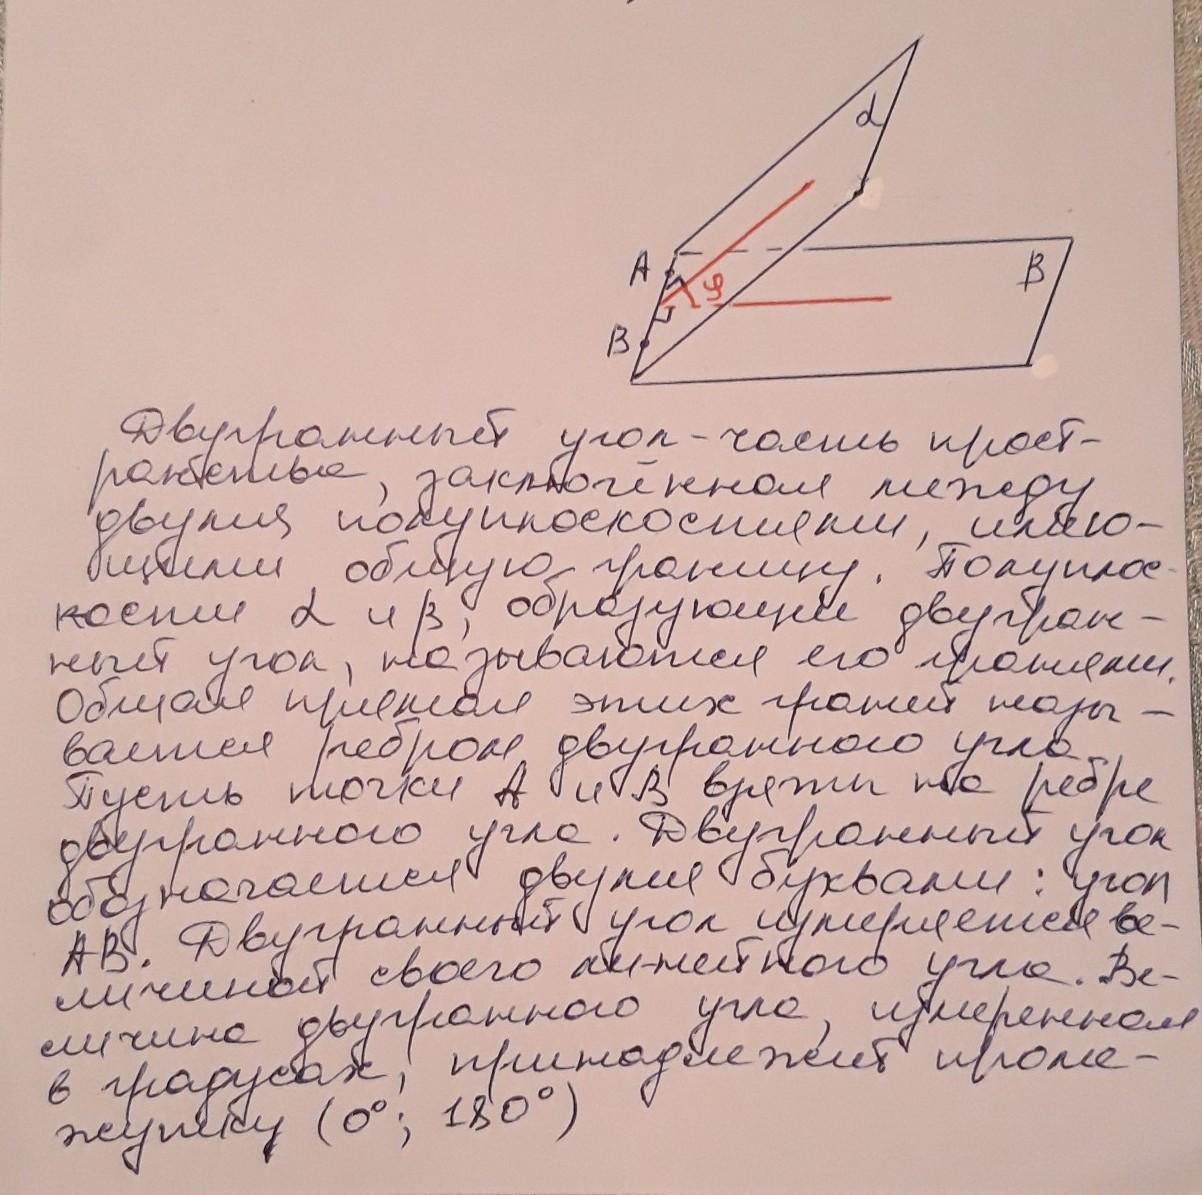 α
A
φ
β
B
Двугранный угол - часть прост-
ранства, заключённая между
двумя полуплоскостями, имею-
щими общую границу. Полуплос-
кости α и β, образующие двугран-
ный угол, называются его гранями.
Общая прямая этих граней назы-
вается ребром двугранного угла.
Пусть точки A и B взяты на ребре
двугранного угла. Двугранный угол
обозначается двумя буквами: угол
AB. Двугранный угол измеряется ве-
личиной своего линейного угла. Ве-
личина двугранного угла, измеренная
в градусах, принадлежит проме-
жутку (0°; 180°)